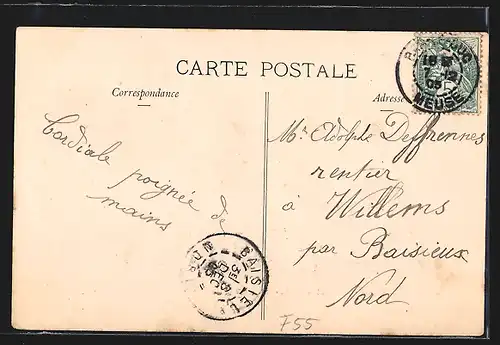 CARTE POSTALE
Correspondance
Adresse
Cordiale poignée de
mains
Mr Adolphe Deffrennes
rentier
à Willems
par Baisieux
Nord
MEUSE
BAISIEUX
F55